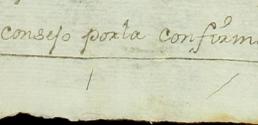 consejo por la confirm